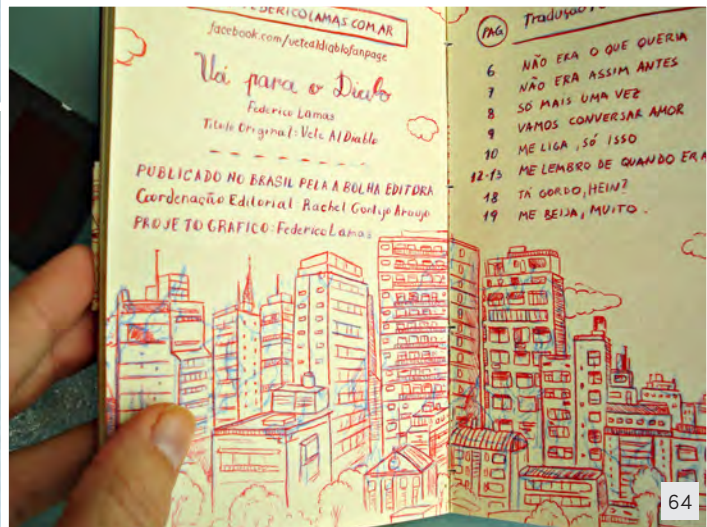 FEDERICOLAMAS.COM.AR
facebook.com/vetealdiablofanpage
Vá para o Diabo
Federico Lamas
Titulo Original: Vete Al Diablo
PUBLICADO NO BRASIL PELA A BOLHA EDITORA
Coordenação Editorial Rachel Gontijo Araujo
PROJETO GRAFICO: Federico Lamas
PAG
6 NÃO ERA O QUE QUERIA
7 NÃO ERA ASSIM ANTES
8 SÓ MAIS UMA VEZ
9 VAMOS CONVERSAR AMOR
10 ME LIGA, SÓ ISSO
12-13 ME LEMBRO DE QUANDO ERA
18 TÁ GORDO, HEIN?
19 ME BEIJA, MUITO.
64